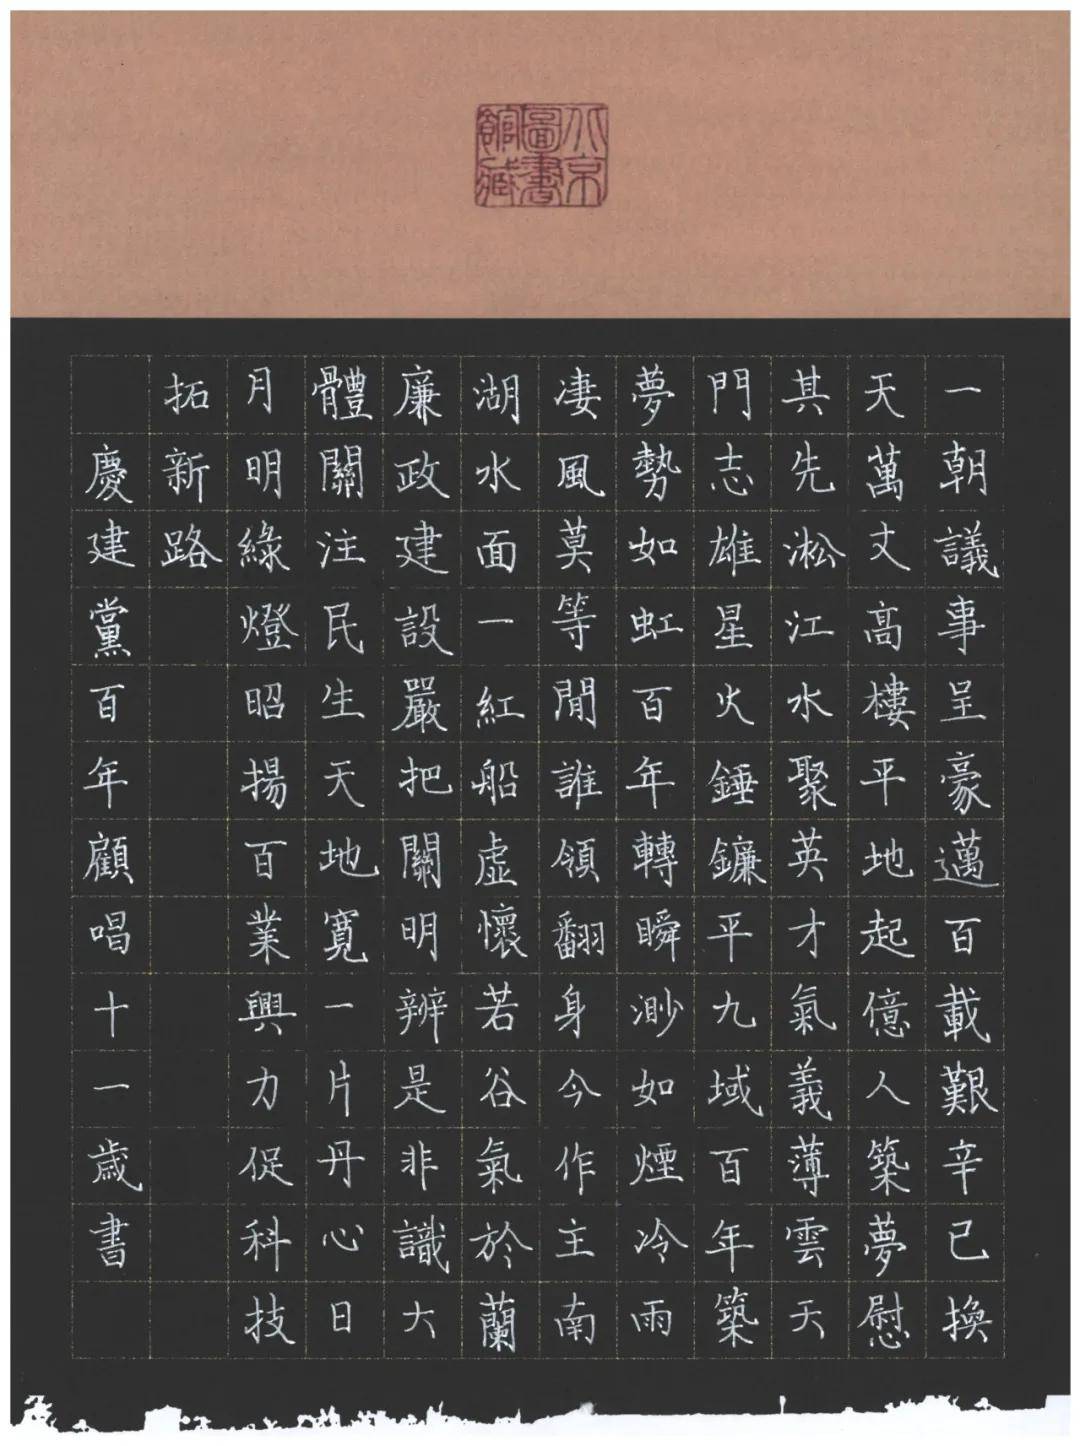 北京
圖書
館藏
一朝議事呈豪邁百載艱辛已換
天萬丈高樓平地起億人築夢慰
其先淞江水聚英才氣義薄雲天
門志雄星火錘鐮平九域百年築
夢勢如虹百年轉瞬渺如煙冷雨
凄風莫等閒誰領翻身今作主南
湖水面一紅船虛懷若谷氣於蘭
廉政建設嚴把關明辨是非識大
體關注民生天地寬一片丹心日
月明綠燈昭揚百業興力促科技
拓新路
慶建黨百年顧唱十一歲書